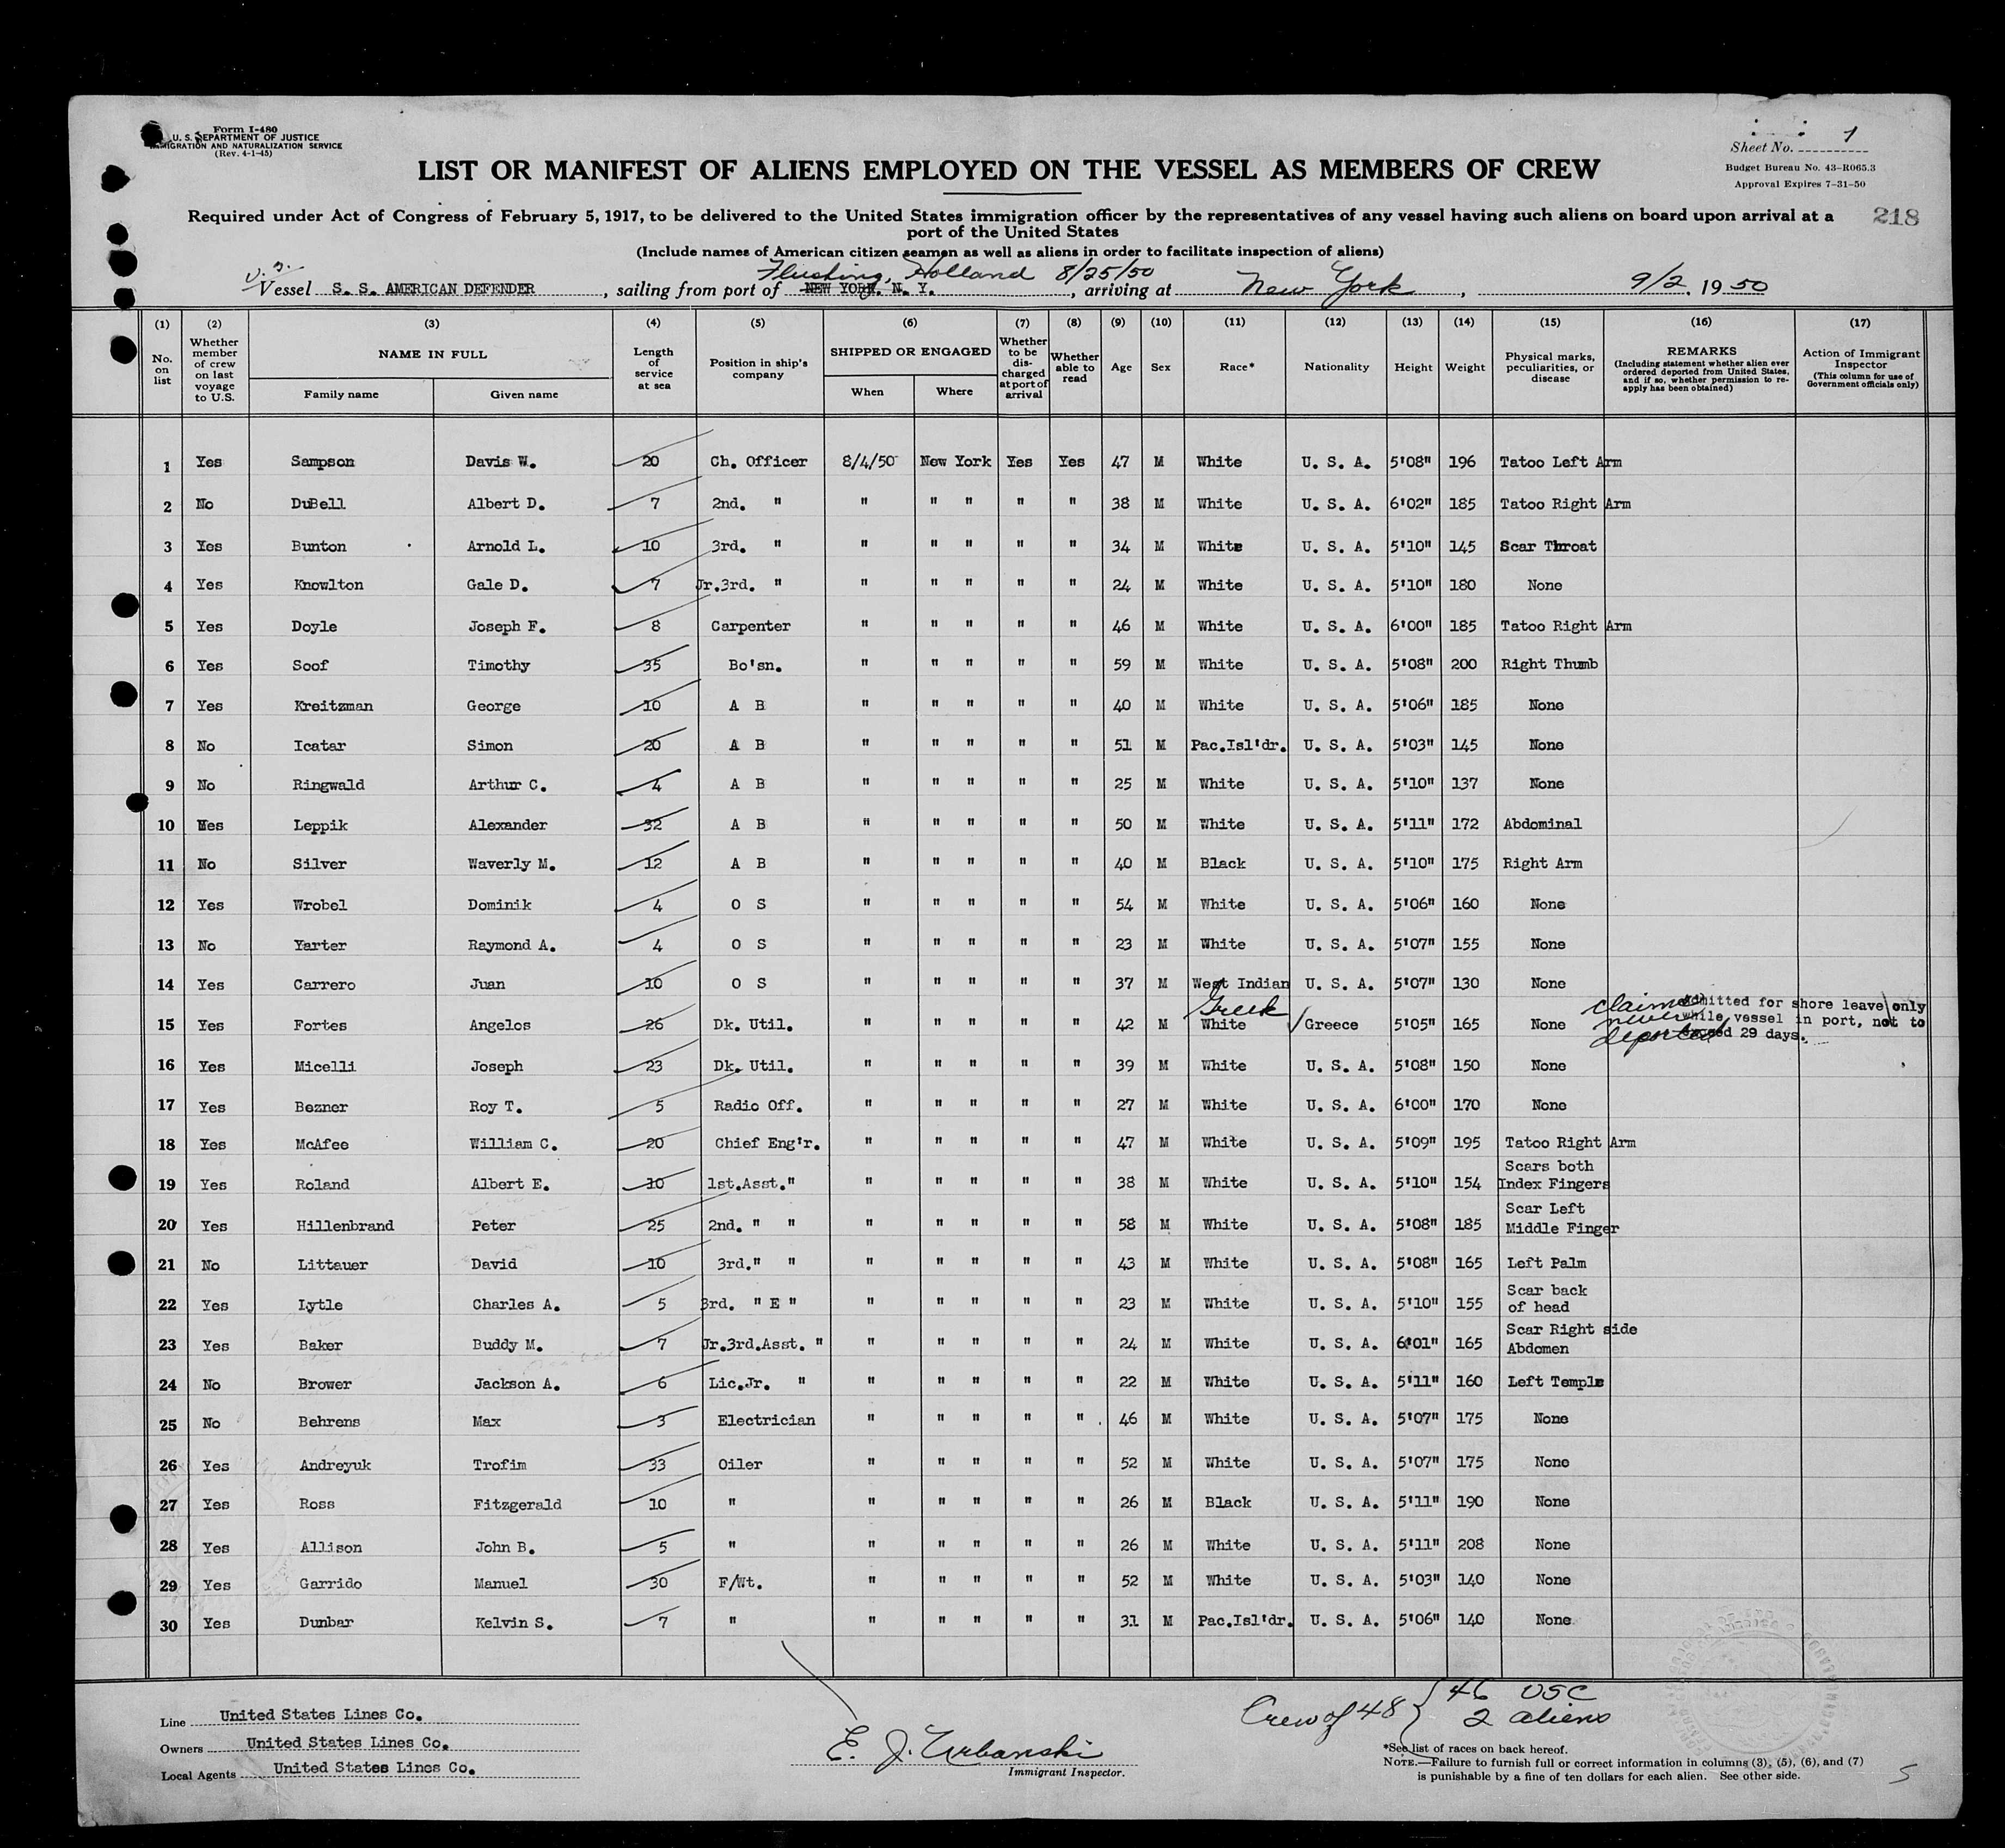 Form I-480
U. S. DEPARTMENT OF JUSTICE
IMMIGRATION AND NATURALIZATION SERVICE
(Rev. 4-1-45)
Sheet No. 1
Budget Bureau No. 43-R065.3
Approval Expires 7-31-50
LIST OR MANIFEST OF ALIENS EMPLOYED ON THE VESSEL AS MEMBERS OF CREW
Required under Act of Congress of February 5, 1917, to be delivered to the United States immigration officer by the representatives of any vessel having such aliens on board upon arrival at a
port of the United States
218
(Include names of American citizen seamen as well as aliens in order to facilitate inspection of aliens)
U.S. Flushing, Holland 8/25/50
Vessel S. S. AMERICAN DEFENDER, sailing from port of NEW YORK, N. Y., arriving at New York, 9/2, 1950
(1) (2) (3) (4) (5) (6) (7) (8) (9) (10) (11) (12) (13) (14) (15) (16) (17)
No. on list | Whether member of crew on last voyage to U.S. | NAME IN FULL | Family name | Given name | Length of service at sea | Position in ship's company | SHIPPED OR ENGAGED | When | Where | Whether to be discharged at port of arrival | Whether able to read | Age | Sex | Race* | Nationality | Height | Weight | Physical marks, peculiarities, or disease | REMARKS (Including statement whether alien ever ordered deported from United States, and if so, whether permission to re-apply has been obtained) | Action of Immigrant Inspector (This column for use of Government officials only)
1 Yes Sampson Davis W. 20 Ch. Officer 8/4/50 New York Yes Yes 47 M White U. S. A. 5'08" 196 Tatoo Left Arm
2 No DuBell Albert D. 7 2nd. " " " " " " 38 M White U. S. A. 6'02" 185 Tatoo Right Arm
3 Yes Bunton Arnold L. 10 3rd. " " " " " " 34 M White U. S. A. 5'10" 145 Scar Throat
4 Yes Knowlton Gale D. 7 Jr.3rd. " " " " " " 24 M White U. S. A. 5'10" 180 None
5 Yes Doyle Joseph F. 8 Carpenter " " " " " 46 M White U. S. A. 6'00" 185 Tatoo Right Arm
6 Yes Soof Timothy 35 Bo'sn. " " " " " 59 M White U. S. A. 5'08" 200 Right Thumb
7 Yes Kreitzman George 10 A B " " " " " 40 M White U. S. A. 5'06" 185 None
8 No Icatar Simon 20 A B " " " " " 51 M Pac.Isl'dr. U. S. A. 5'03" 145 None
9 No Ringwald Arthur C. 4 A B " " " " " 25 M White U. S. A. 5'10" 137 None
10 Yes Leppik Alexander 32 A B " " " " " 50 M White U. S. A. 5'11" 172 Abdominal
11 No Silver Waverly M. 12 A B " " " " " 40 M Black U. S. A. 5'10" 175 Right Arm
12 Yes Wrobel Dominik 4 O S " " " " " 54 M White U. S. A. 5'06" 160 None
13 No Yarter Raymond A. 4 O S " " " " " 23 M White U. S. A. 5'07" 155 None
14 Yes Carrero Juan 10 O S " " " " " 37 M West Indian U. S. A. 5'07" 130 None
Greek claims never deported
admitted for shore leave only
while vessel in port, not to
exceed 29 days.
15 Yes Fortes Angelos 26 Dk. Util. " " " " " 42 M White Greece 5'05" 165 None
16 Yes Micelli Joseph 23 Dk. Util. " " " " " 39 M White U. S. A. 5'08" 150 None
17 Yes Bezner Roy T. 5 Radio Off. " " " " " 27 M White U. S. A. 6'00" 170 None
18 Yes McAfee William C. 20 Chief Eng'r. " " " " " 47 M White U. S. A. 5'09" 195 Tatoo Right Arm
19 Yes Roland Albert E. 10 1st.Asst." " " " " " 38 M White U. S. A. 5'10" 154 Scars both Index Fingers
20 Yes Hillenbrand Peter 25 2nd. " " " " " " " 58 M White U. S. A. 5'08" 185 Scar Left Middle Finger
21 No Littauer David 10 3rd." " " " " " " 43 M White U. S. A. 5'08" 165 Left Palm
22 Yes Lytle Charles A. 5 3rd. " E " " " " " " 23 M White U. S. A. 5'10" 155 Scar back of head
23 Yes Baker Buddy M. 7 Jr.3rd.Asst. " " " " " " 24 M White U. S. A. 6'01" 165 Scar Right side Abdomen
24 No Brower Jackson A. 6 Lic.Jr. " " " " " " 22 M White U. S. A. 5'11" 160 Left Temple
25 No Behrens Max 3 Electrician " " " " " 46 M White U. S. A. 5'07" 175 None
26 Yes Andreyuk Trofim 33 Oiler " " " " " 52 M White U. S. A. 5'07" 175 None
27 Yes Ross Fitzgerald 10 " " " " " " 26 M Black U. S. A. 5'11" 190 None
28 Yes Allison John B. 5 " " " " " " 26 M White U. S. A. 5'11" 208 None
29 Yes Garrido Manuel 30 F/Wt. " " " " " 52 M White U. S. A. 5'03" 140 None
30 Yes Dunbar Kelvin S. 7 " " " " " " 31 M Pac.Isl'dr. U. S. A. 5'06" 140 None
Line United States Lines Co.
Owners United States Lines Co.
Local Agents United States Lines Co.
E. J. Urbanski
Immigrant Inspector.
Crew of 48 { 46 USC
2 aliens
*See list of races on back hereof.
NOTE.—Failure to furnish full or correct information in columns (3), (5), (6), and (7)
is punishable by a fine of ten dollars for each alien. See other side.
5